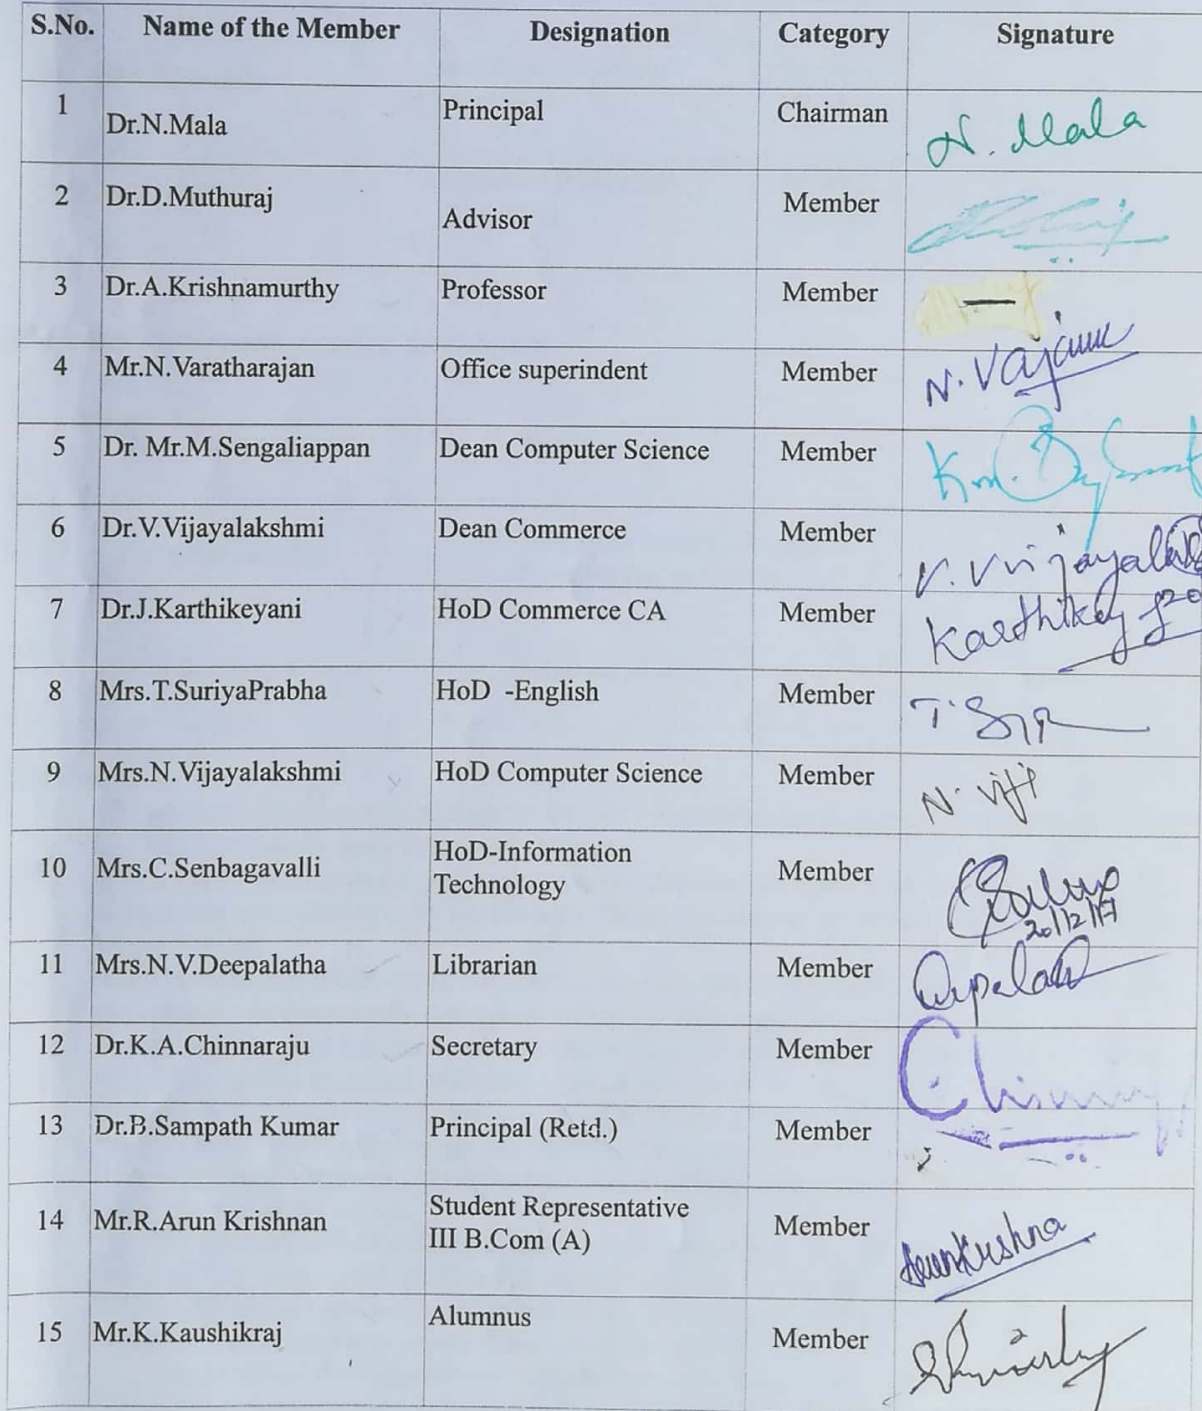 S.No. Name of the Member Designation Category Signature
1 Dr.N.Mala Principal Chairman N. Mala
2 Dr.D.Muthuraj Advisor Member
3 Dr.A.Krishnamurthy Professor Member —
4 Mr.N.Varatharajan Office superindent Member N.
5 Dr. Mr.M.Sengaliappan Dean Computer Science Member
6 Dr.V.Vijayalakshmi Dean Commerce Member V.
7 Dr.J.Karthikeyani HoD Commerce CA Member Karthikey
8 Mrs.T.SuriyaPrabha HoD -English Member T.
9 Mrs.N.Vijayalakshmi HoD Computer Science Member N. Viji
10 Mrs.C.Senbagavalli HoD-Information
Technology Member
20/12/17
11 Mrs.N.V.Deepalatha Librarian Member
12 Dr.K.A.Chinnaraju Secretary Member
13 Dr.B.Sampath Kumar Principal (Retd.) Member
14 Mr.R.Arun Krishnan Student Representative
III B.Com (A) Member ArunKrishna
15 Mr.K.Kaushikraj Alumnus Member